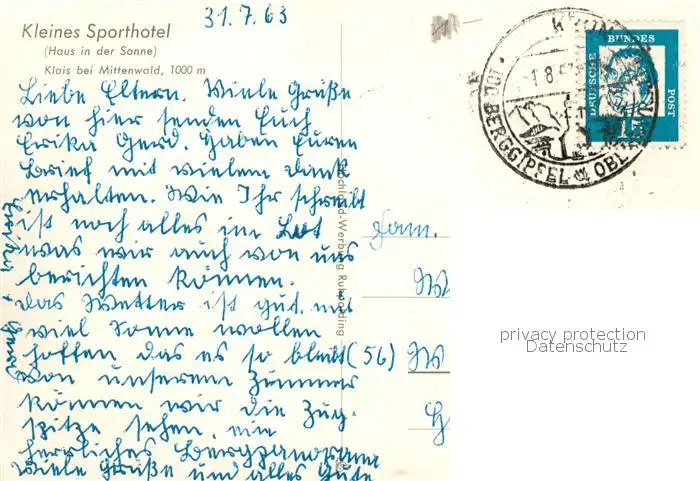 31.7.63
Kleines Sporthotel
(Haus in der Sonne)
Klais bei Mittenwald, 1000 m
Liebe Eltern. Viele Grüße
von hier senden Euch
Erika Gerd. Haben Euren
Brief mit vielem Dank
erhalten. Wie Ihr schreibt
ist noch alles im Lot
was wir auch von uns
berichten können.
das Wetter ist gut. mit
viel Sonne wollen
hoffen das es so bleibt
von unserem Zimmer
können wir die Zug-
spitze sehen, ein
herrliches Bergpanorama
Viele Grüße und alles Gute
Fam.
W
(56) W
H
BERGGIPFEL
DEUTSCHE
BUNDES
POST
15
privacy protection
Datenschutz